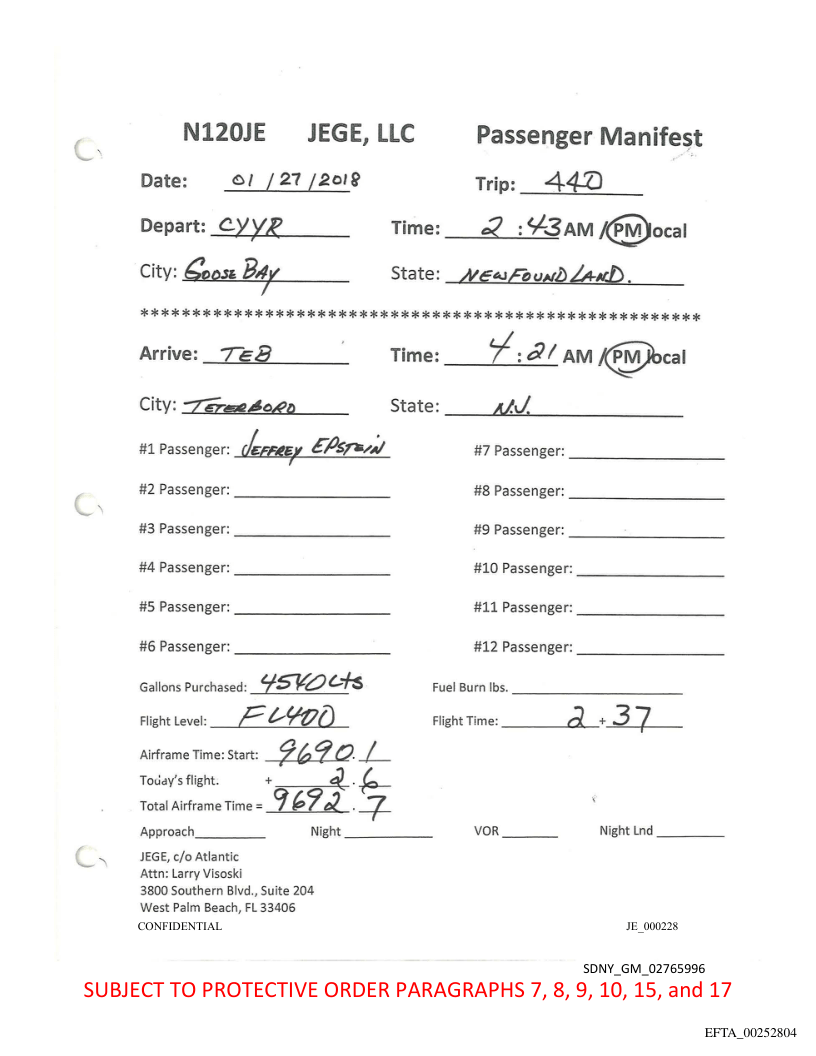 N120JE JEGE, LLC Passenger Manifest
Date: 01 / 27 / 2018 Trip: 440
Depart: CYYR Time: 2 : 43 AM / PM local
City: GOOSE BAY State: NEWFOUNDLAND.
******************************************************
Arrive: TEB Time: 4 : 21 AM / PM local
City: TETERBORO State: N.J.
#1 Passenger: JEFFREY EPSTEIN #7 Passenger:
#2 Passenger: #8 Passenger:
#3 Passenger: #9 Passenger:
#4 Passenger: #10 Passenger:
#5 Passenger: #11 Passenger:
#6 Passenger: #12 Passenger:
Gallons Purchased: 4540 Lts Fuel Burn lbs.
Flight Level: FL400 Flight Time: 2 + 37
Airframe Time: Start: 9690.1
Today's flight. + 2.6
Total Airframe Time = 9692.7
Approach Night VOR Night Lnd
JEGE, c/o Atlantic
Attn: Larry Visoski
3800 Southern Blvd., Suite 204
West Palm Beach, FL 33406
CONFIDENTIAL JE_000228
SDNY_GM_02765996
SUBJECT TO PROTECTIVE ORDER PARAGRAPHS 7, 8, 9, 10, 15, and 17
EFTA_00252804